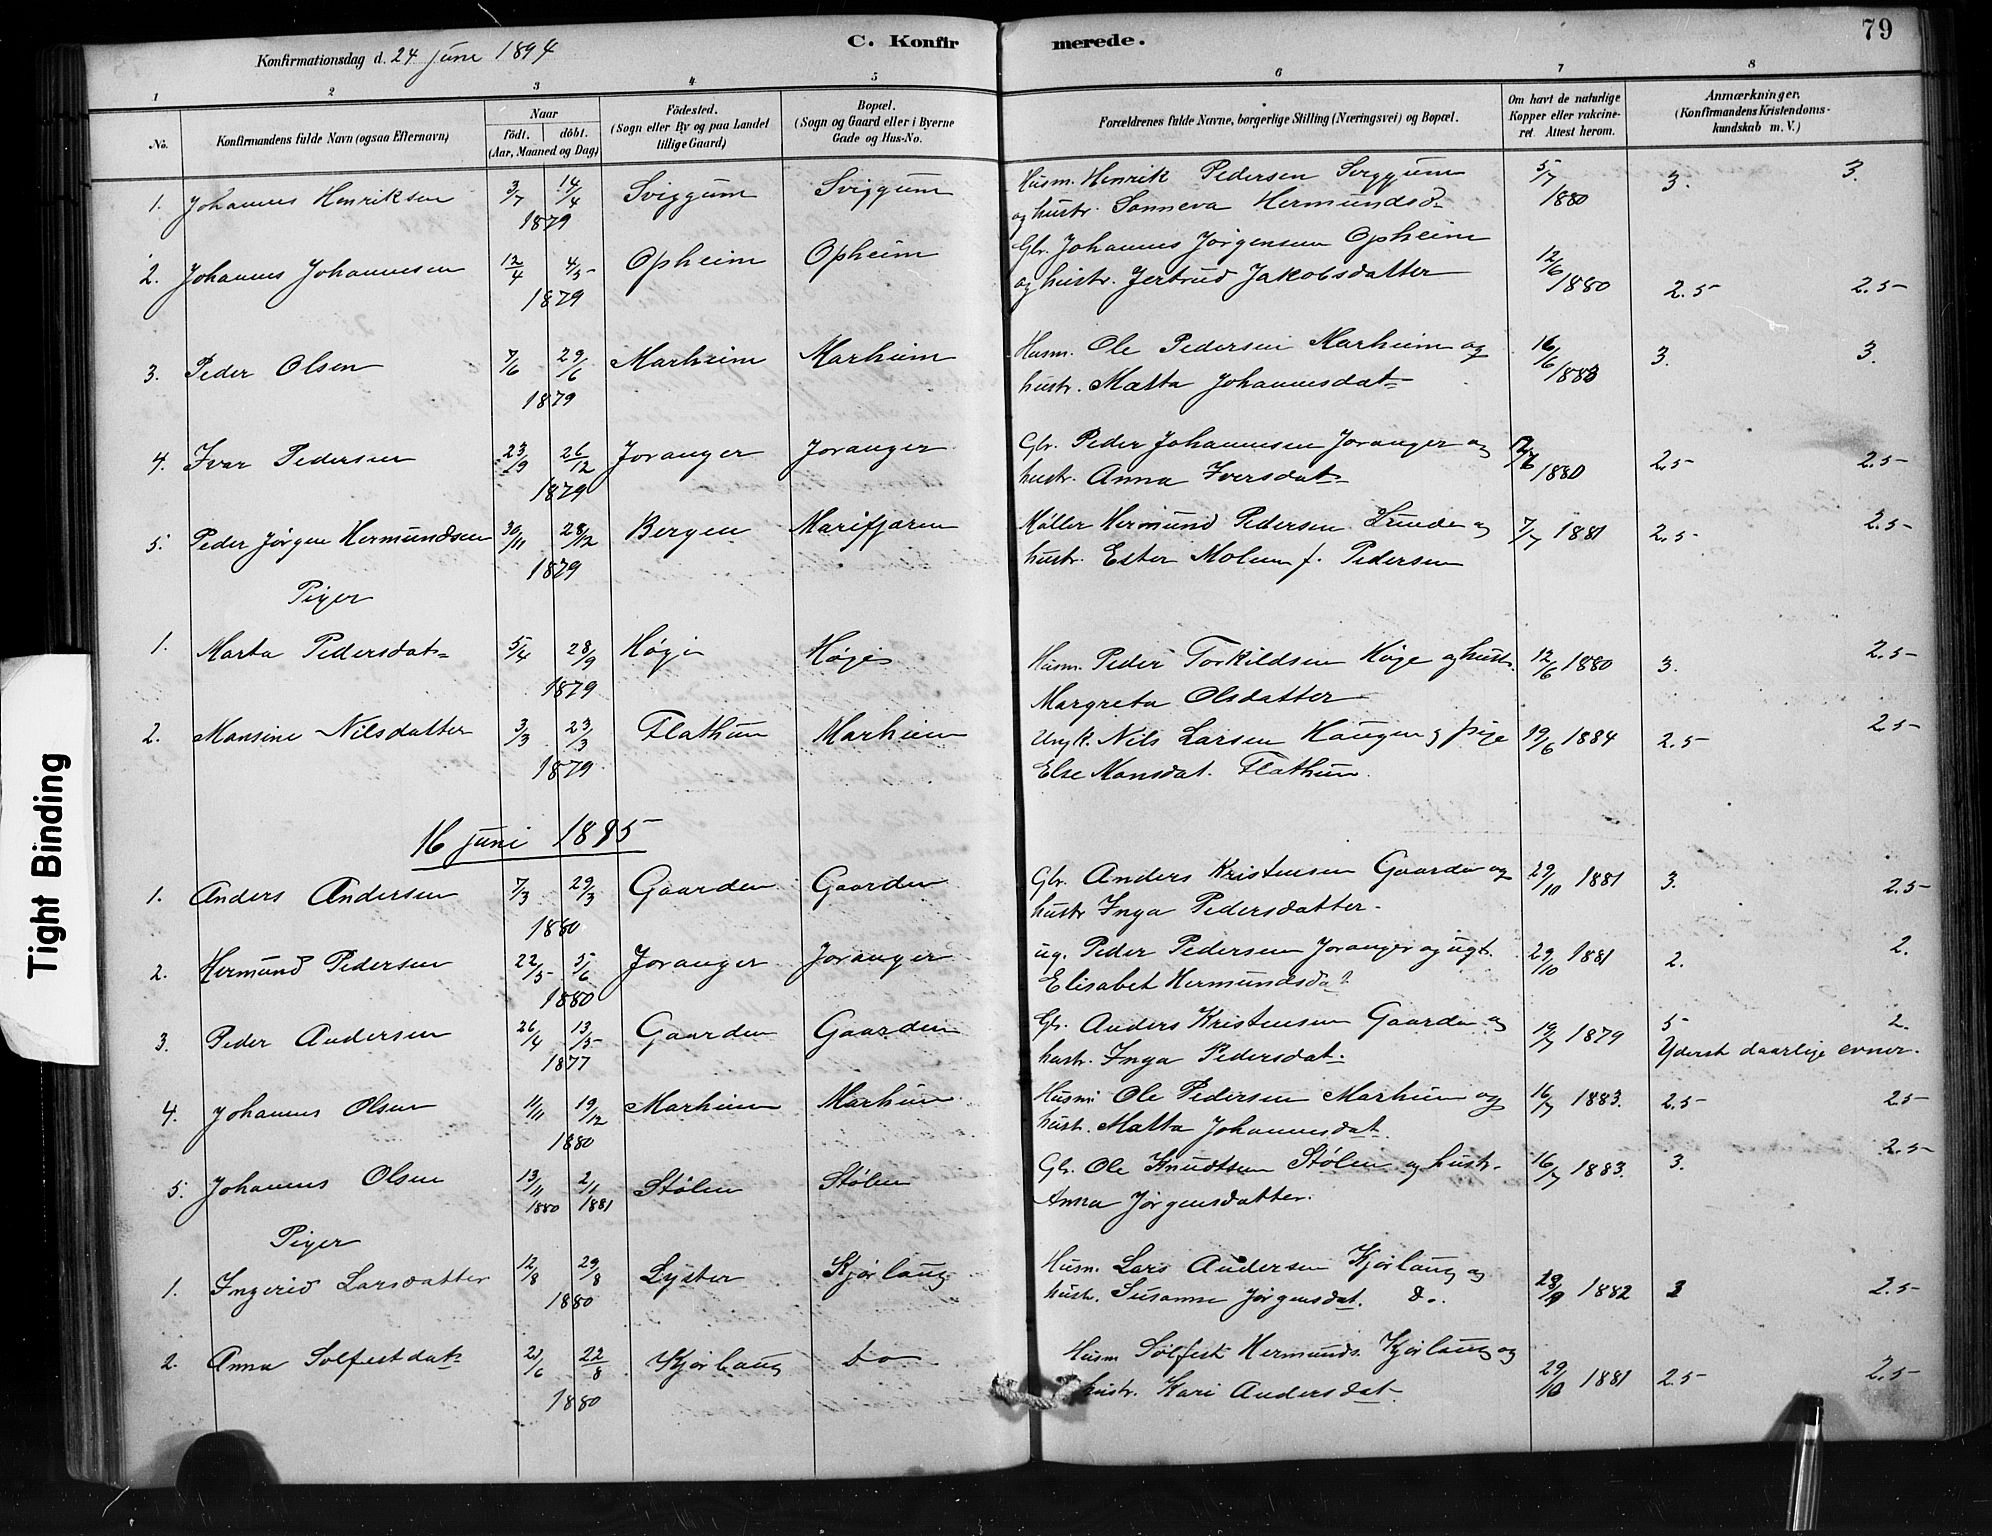 79
C. Konfirmerede.
Konfirmationsdag d. 24 juni 1894
1 2 3 4 5 6 7 8
No. Konfirmandens fulde Navn (ogsaa Efternavn) Naar født. døbt. (Aar, Maaned og Dag) Födested. (Sogn eller By og paa Landet tillige Gaard) Bopæl. (Sogn og Gaard eller i Byerne Gade og Hus-No. Forældrenes fulde Navne, borgerlige Stilling (Næringsvei) og Bopæl. Om havt de naturlige Kopper eller vakcineret. Attest herom. Anmærkninger, (Konfirmandens Kristendomskundskab m. V.)
1. Johannes Henriksen 3/7 14/4 1879 Sviggum Sviggum Husm. Henrik Pedersen Sviggum 5/7 1880 3. 3.
og hustr. Sonneva Hermundsd.
2. Johannes Johannesen 12/4 4/5 1879 Opheim Opheim Gbr. Johannes Jørgensen Opheim 12/6 1880 2.5 2.5
og hustr. Jertrud Jakobsdatter
3. Peder Olsen 7/6 29/6 1879 Marheim Marheim Husm. Ole Pedersen Marheim og 16/6 1883 3. 3.
hustr. Matta Johannesdat
4. Ivar Pedersen 23/9 26/12 1879 Joranger Joranger Gbr. Peder Johannesen Joranger og 1880 2.5 2.5
hustr. Anna Iversdat
5. Peder Jørgen Hermundsen 30/11 28/12 1879 Bergen Marifjæren Møller Hermund Pedersen Lunde og 7/7 1881 2.5 2.5
hustr. Ester Molum f. Pedersen
Piger
1. Marta Pedersdat 5/4 28/9 1879 Høge Høge Husm. Peder Torkildsen Høge og hust. 12/6 1880 3. 2.5
Margreta Olsdatter
2. Mansine Nilsdatter 3/3 23/3 1879 Flathun Marheim Ungk. Nils Larsen Haugen og pige 19/6 1884 2.5 2.5
Else Monsdat. Flathun.
16 juni 1895
1. Anders Andersen 7/3 29/3 1880 Gaarden Gaarden Gbr. Anders Kristensen Gaarden og 29/10 1881 3. 2.5
hustr Inga Pedersdatter.
2. Hermund Pedersen 22/5 5/6 1880 Joranger Joranger ug. Peder Pedersen Joranger og ugt. 29/10 1881 2. 2.
Elisabet Hermundsdat
3. Peder Andersen 26/4 13/5 1877 Gaarden Gaarden Gbr. Anders Kristensen Gaarden og 19/7 1879 5 2.
hustr. Inga Pedersdat. Yderst daarlige evner.
4. Johannes Olsen 11/11 19/12 1880 Marheim Marheim Husm Ole Pedersen Marheim og 16/7 1883. 2.5 2.5
hustr. Matta Johannesdat.
5. Johannes Olsen 13/11 1880 2/1 1881 Stølen Stølen Gbr. Ole Knudtsen Stølen og hustr. 16/7 1883. 3. 2.5
Anna Jørgensdatter.
Piger
1. Ingerid Larsdatter 12/8 29/8 1880 Lyster Kjørlaug Husm. Lars Andersen Kjørlaug og 1882 3 2.5
hustr. Susanne Jørgensdat. do.
2. Anna Solfestdat 21/6 22/8 1880 Kjørlaug do Husm Sølfest Hermunds. Kjørlaug og 29/10 1881 2.5 2.5
hustr. Kari Andersdat.
Tight Binding